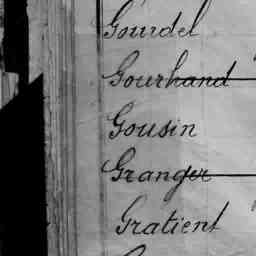 Gourdel
Gourhand
Gousin
Granger
Gratient